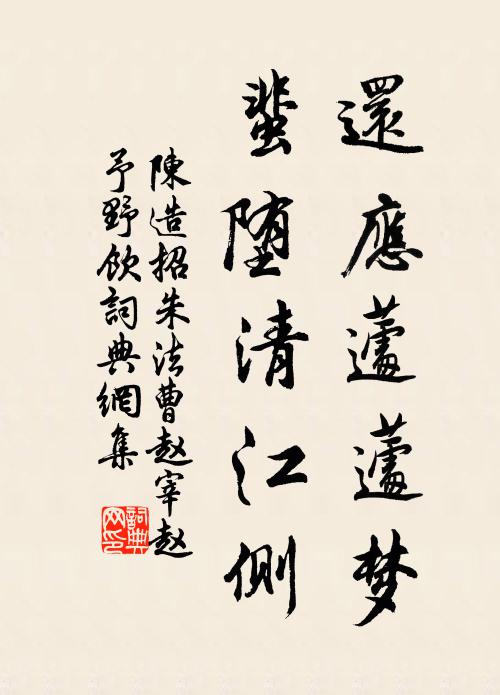 還應蘧蘧梦
蜚堕清江側
陳造招朱法曹赵宰赵
予野飲詞典網集
詞典
网印